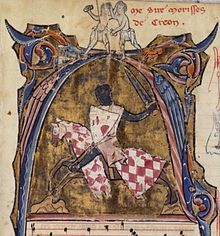 Me sire morisses
de Creon.